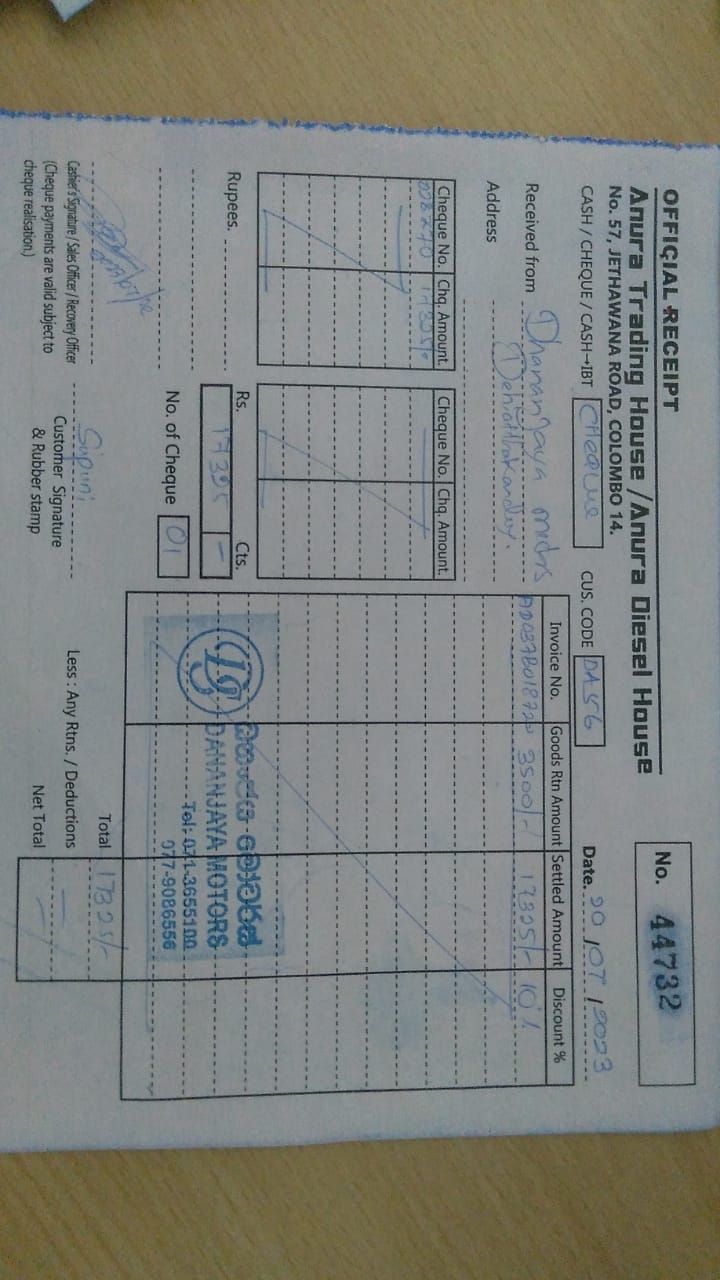 OFFICIAL RECEIPT
Anura Trading House / Anura Diesel House
No. 57, JETHAWANA ROAD, COLOMBO 14.
No. 44732
CASH / CHEQUE / CASH→IBT Cheque CUS. CODE DA56 Date. 20/07/2023
Received from Dhananjaya motors
Address
Cheque No. Chq. Amount. Cheque No. Chq. Amount.
Invoice No. Goods Rtn Amount Settled Amount Discount %
3500/- 17325/- 10%
Rupees.
Rs. Cts.
No. of Cheque 01
DANANJAYA MOTORS
Tel: 071-3655100
077-9086556
Total 17325/-
Less : Any Rtns. / Deductions
Net Total
Cashier's Signature / Sales Officer / Recovery Officer
(Cheque payments are valid subject to
cheque realisation.)
Sipuni
Customer Signature
& Rubber stamp